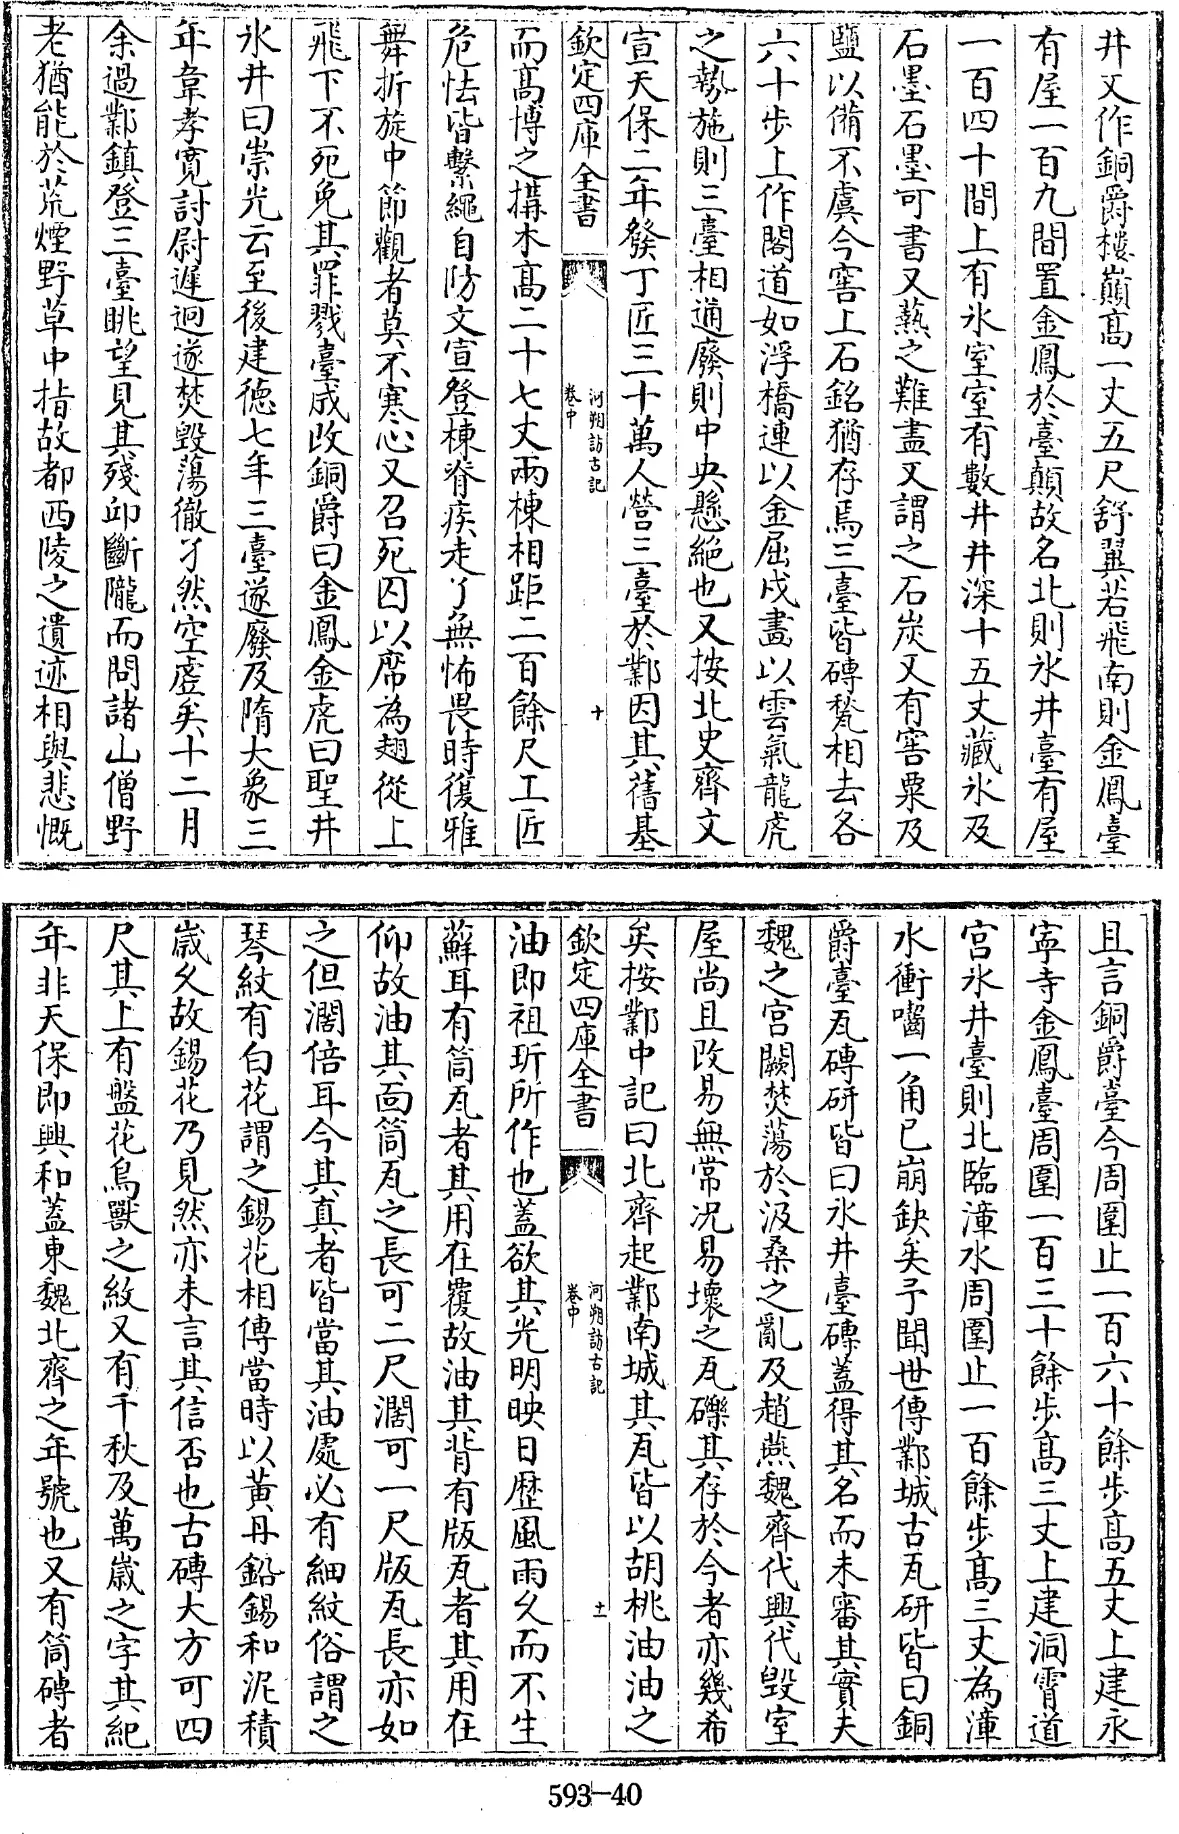 井又作銅爵樓巔高一丈五尺舒翼若飛南則金鳳臺
有屋一百九間置金鳳於臺顛故名北則氷井臺有屋
一百四十間上有氷室室有數井井深十五丈藏氷及
石墨石墨可書又爇之難盡又謂之石炭又有窖粟及
鹽以備不虞今窖上石銘猶存焉三臺皆磚甃相去各
六十步上作閣道如浮橋連以金屈戍畫以雲氣龍虎
之勢施則三臺相通廢則中央懸絶也又按北史齊文
宣天保二年發丁匠三十萬人營三臺於鄴因其舊基
欽定四庫全書
河朔訪古記
卷中
十
而高博之搆木高二十七丈兩棟相距二百餘尺工匠
危怯皆繫繩自防文宣登棟脊疾走了無怖畏時復雅
舞折旋中節觀者莫不寒心又召死囚以席為翅從上
飛下不死免其罪戮臺成改銅爵曰金鳳金虎曰聖井
氷井曰崇光云至後建德七年三臺遂廢及隋大象三
年韋孝寛討尉遲迥遂焚毁蕩徹孑然空虛矣十二月
余過鄴鎮登三臺眺望見其殘邱斷隴而問諸山僧野
老猶能於荒煙野草中指故都西陵之遺迹相與悲慨
且言銅爵臺今周圍止一百六十餘步高五丈上建永
寧寺金鳳臺周圍一百三十餘步高三丈上建洞霄道
宫氷井臺則北臨漳水周圍止一百餘步高三丈為漳
水衝嚙一角已崩缺矣予聞世傳鄴城古瓦研皆曰銅
爵臺瓦磚研皆曰氷井臺磚蓋得其名而未審其實夫
魏之宫闕焚蕩於汲桑之亂及趙燕魏齊代興代毁室
屋尚且改易無常况易壞之瓦礫其存於今者亦幾希
矣按鄴中記曰北齊起鄴南城其瓦皆以胡桃油油之
欽定四庫全書
河朔訪古記
卷中
十一
油即祖珩所作也蓋欲其光明映日歴風雨久而不生
蘚耳有筒瓦者其用在覆故油其背有版瓦者其用在
仰故油其面筒瓦之長可二尺濶可一尺版瓦長亦如
之但濶倍耳今其真者皆當其油處必有細紋俗謂之
琴紋有白花謂之錫花相傳當時以黄丹鉛錫和泥積
歲久故錫花乃見然亦未言其信否也古磚大方可四
尺其上有盤花鳥獸之紋又有千秋及萬歲之字其紀
年非天保即興和蓋東魏北齊之年號也又有筒磚者
593-40